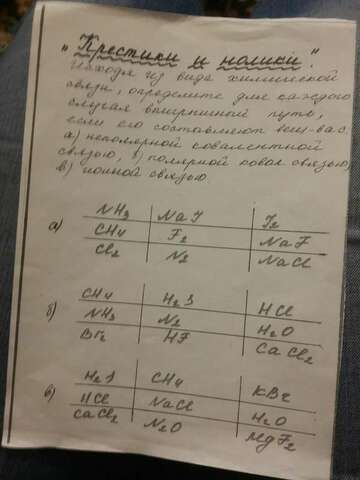 "Крестики и нолики."
Исходя из вида химической
связи, определите для каждого
случая выигрышный путь,
если его составляют вещ-ва с:
а) неполярной ковалентной
связью, б) полярной ковал. связью,
в) ионной связью.
а) NH3 | NaI | I2
CH4 | F2 | NaF
Cl2 | N2 | NaCl
б) CH4 | H2S | HCl
NH3 | N2 | H2O
Br2 | HF | CaCl2
в) H2S | CH4 | KBr
HCl | NaCl | H2O
CaCl2 | N2O | MgF2